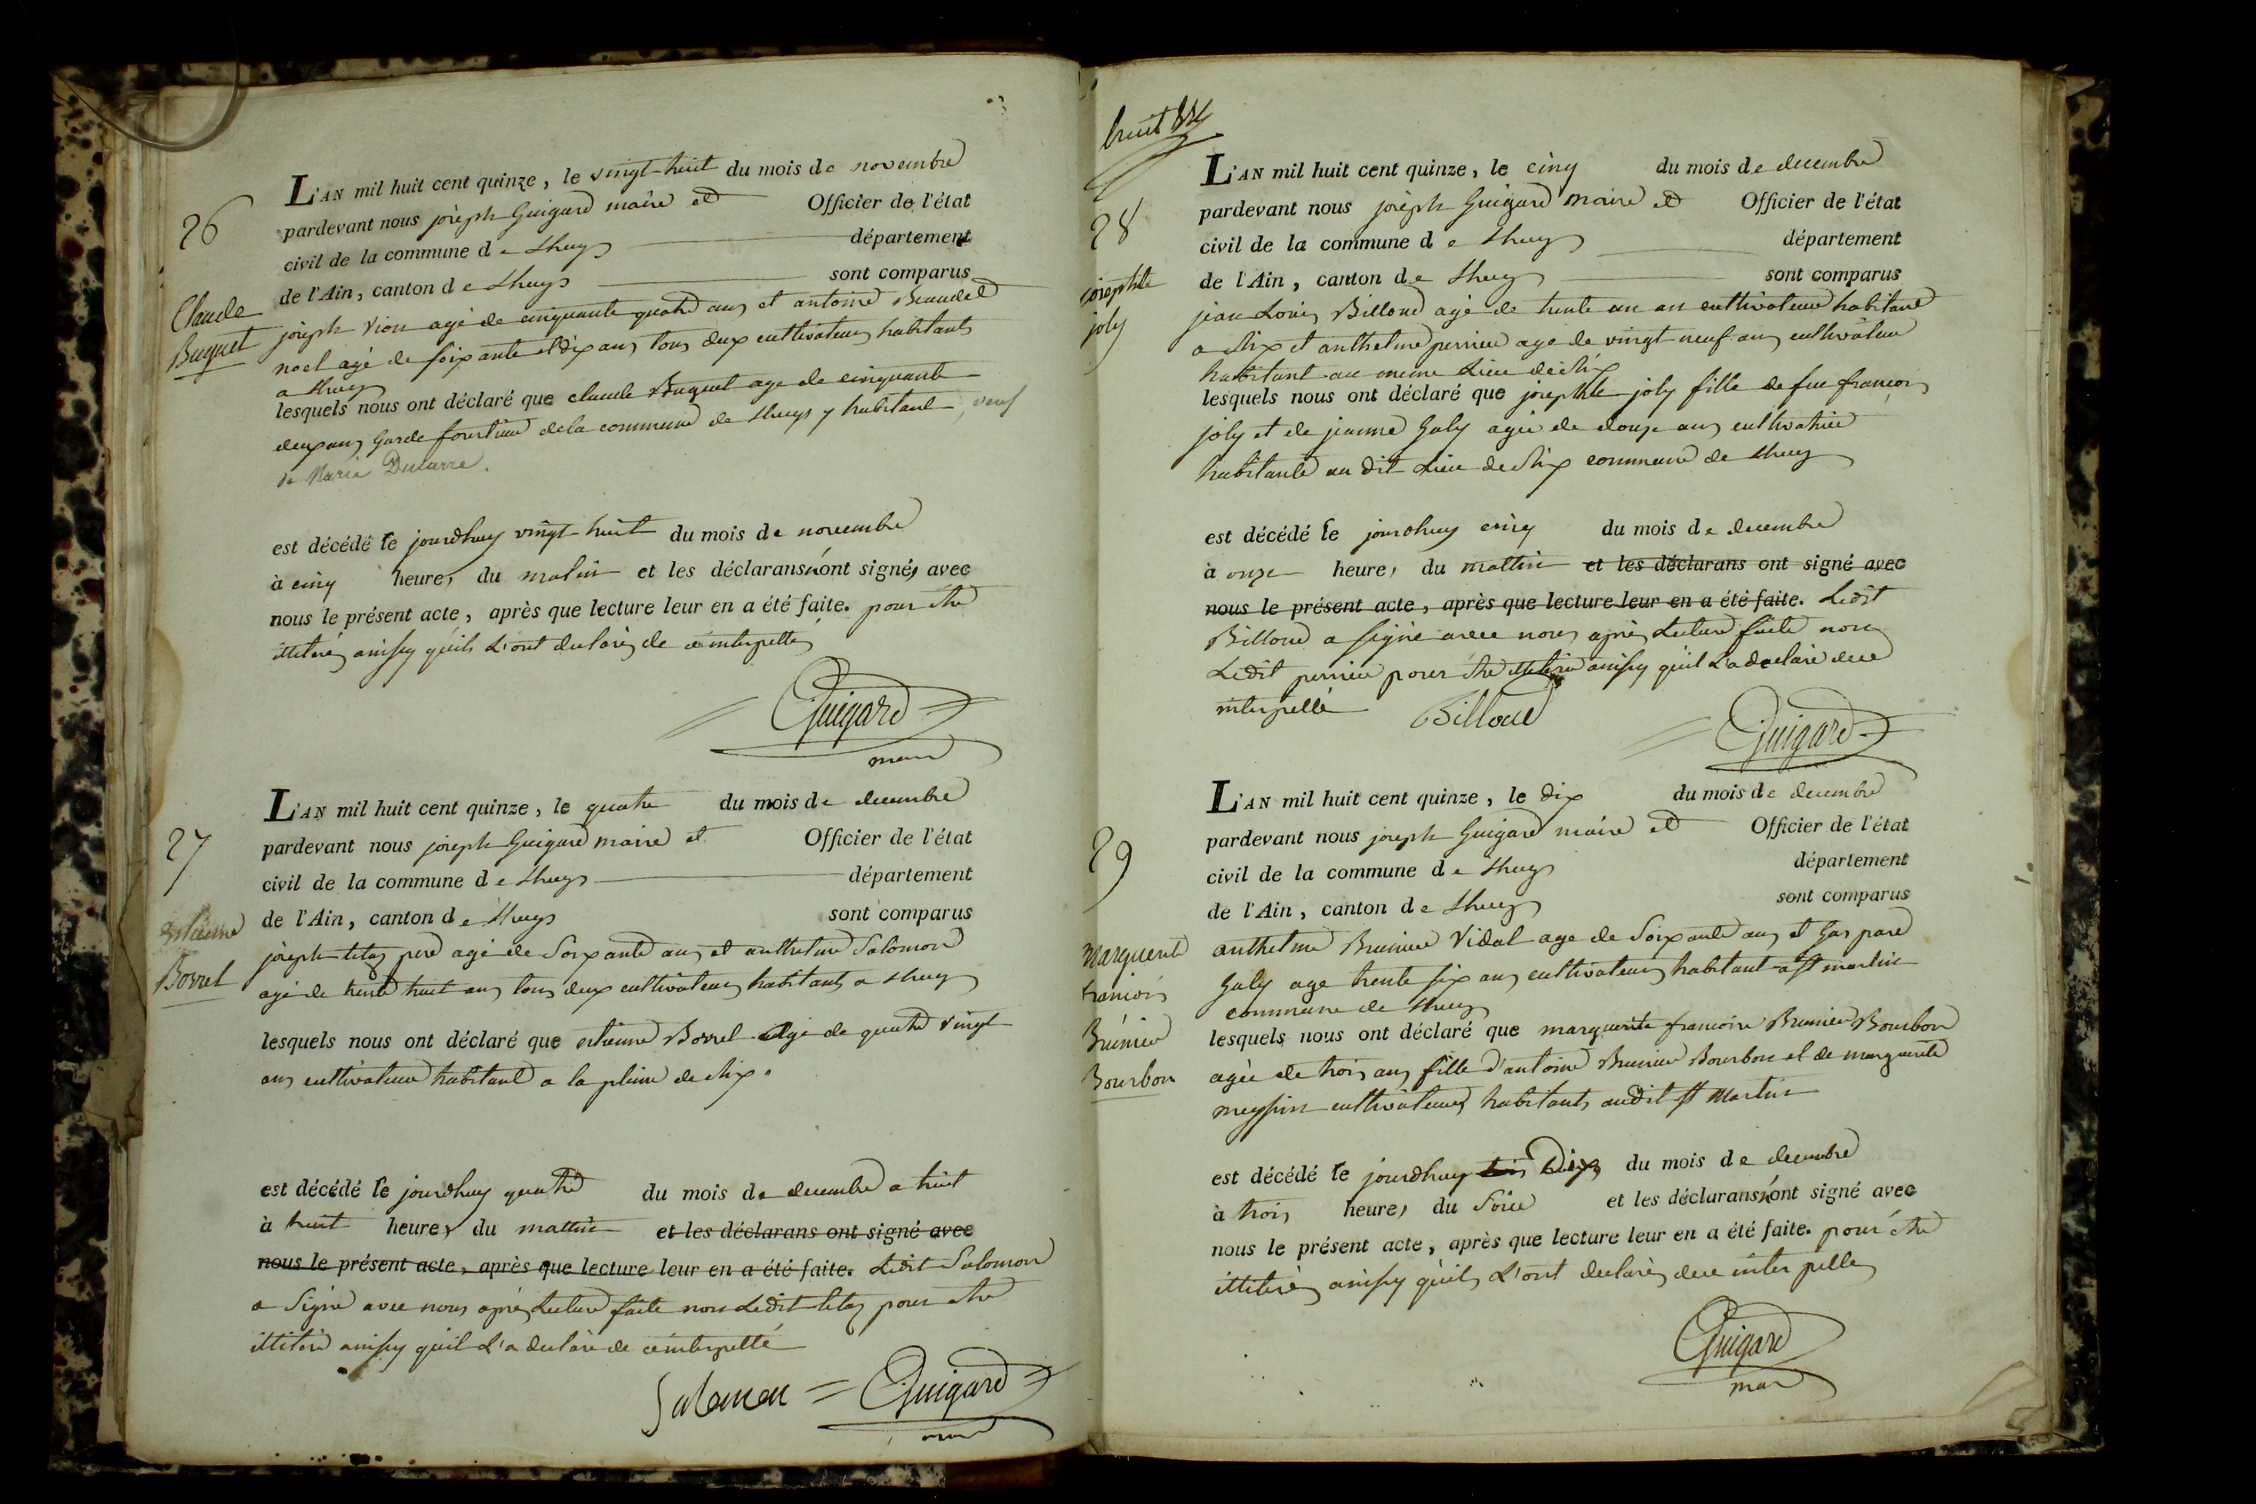 26
Claude
Buguet
L'AN mil huit cent quinze, le vingt-huit du mois de novembre
pardevant nous joseph Guigard maire et Officier de l'état
civil de la commune de Lhuys département
de l'Ain, canton de Lhuys sont comparus
joseph vion agé de cinquante quatre ans et antoine Beaudet
noel agé de soixante et dix ans tous deux cultivateurs habitants
a Lhuys
lesquels nous ont déclaré que claude Buguet age de cinquante
deux ans Garde forestier de la commune de Lhuys y habitant, veuf
de Marie Ducarre.
est décédé le jourdhuy vingt-huit du mois de novembre
à cinq heures du matin et les déclarans n'ont signés avec
nous le présent acte, après que lecture leur en a été faite. pour etre
illitérés ainsy quils L'ont declarés de ce interpellés
Guigard
maire
27
estienne
Borrel
L'AN mil huit cent quinze, le quatre du mois de decembre
pardevant nous joseph Guigard maire et Officier de l'état
civil de la commune de Lhuys département
de l'Ain, canton de Lhuys sont comparus
joseph titaz pere agé de Soixante ans et anthelme Salomon
agé de trente huit ans tous deux cultivateurs habitants a Lhuys
lesquels nous ont déclaré que estienne Borrel Agé de quatre vingt
ans cultivateur habitant a la plaine de Rix.
est décédé le jourdhuy quatre du mois de decembre a huit
à huit heures du mattin et les déclarans ont signé avec
nous le présent acte, après que lecture leur en a été faite. Ledit Salomon
a Signé avec nous après Lecture faite non Ledit titaz pour etre
illitéré ainsy quil L'a declaré de ce interpellé
Salomon Guigard
maire
28
josephte
joly
L'AN mil huit cent quinze, le cinq du mois de decembre
pardevant nous joseph Guigard maire et Officier de l'état
civil de la commune de Lhuys département
de l'Ain, canton de Lhuys sont comparus
jean Louis Billoud agé de trente un an cultivateur habitant
a Rix et anthelme perrier age de vingt neuf ans cultivateur
habitant au meme Lieu de Rix
lesquels nous ont déclaré que josephte joly fille de feu francois
joly et de jeanne Galy agée de douze ans cultivatrice
habitante au dit Lieu de Rix commune de Lhuys
est décédé le jourdhuy cinq du mois de decembre
à onze heures du mattin et les déclarans ont signé avec
nous le présent acte, après que lecture leur en a été faite. Ledit
Billoud a signé avec nous après Lecture faite non
Ledit perrier pour etre illitéré ainsy quil L'a declaré de ce
interpellé Billoud
Guigard
29
Marguerite
francois
Brunier
Bourbon
L'AN mil huit cent quinze, le dix du mois de decembre
pardevant nous joseph Guigard maire et Officier de l'état
civil de la commune de Lhuys département
de l'Ain, canton de Lhuys sont comparus
anthelme Brunier Vidal age de Soixante ans et Gaspard
Galy age trente six ans cultivateurs habitant a st martin
commune de Lhuys
lesquels nous ont déclaré que marguerite francoise Brunier Bourbon
agée de trois ans fille d'antoine Brunier Bourbon et de marguerite
meyssin cultivateurs habitants audit st Martin
est décédé le jourdhuy Dix du mois de decembre
à trois heures du Soir et les déclarans n'ont signé avec
nous le présent acte, après que lecture leur en a été faite. pour être
illitérés ainsy quils L'ont declarés de ce interpellés
Guigard
maire